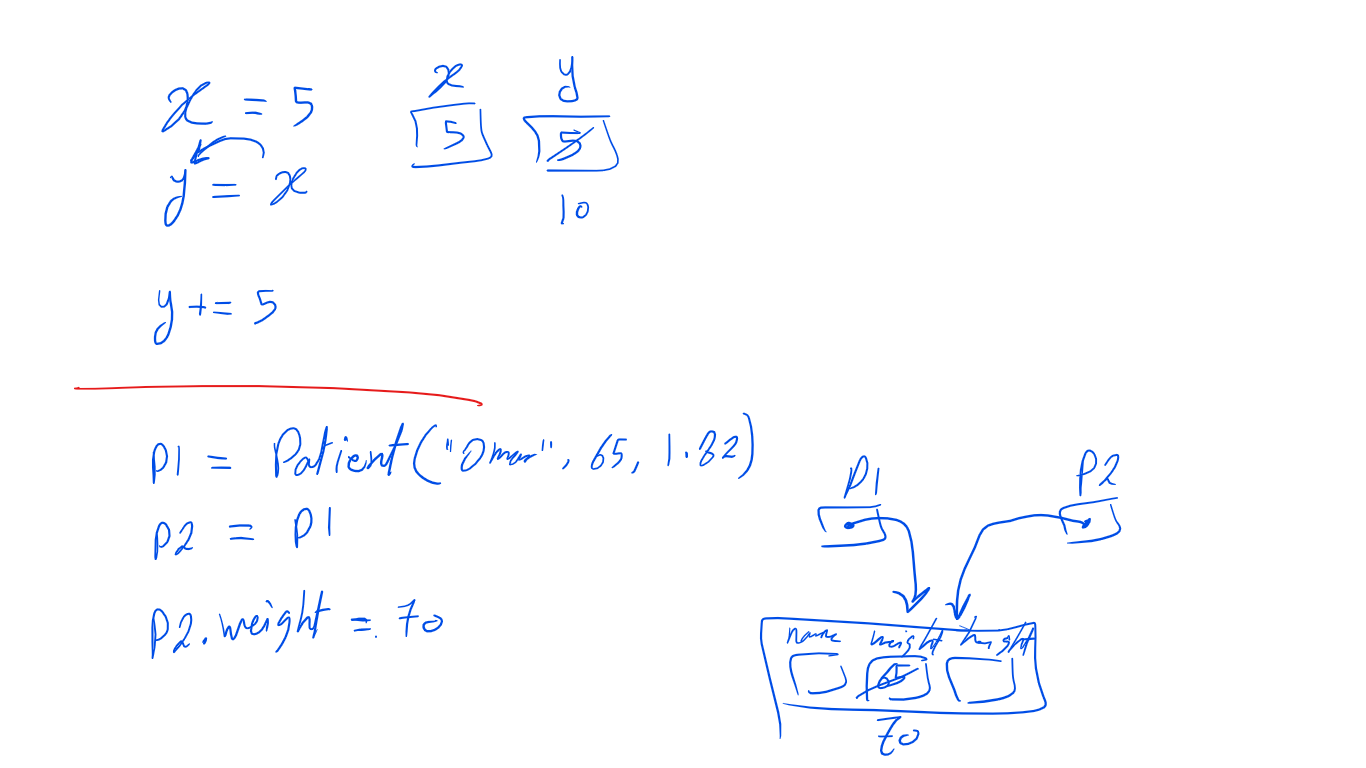 x = 5
y = x
x y
5 5
10
y += 5
P1 = Patient("Omar", 65, 1.82)
P2 = P1
P2.weight = 70
P1 P2
name weight height
65
70